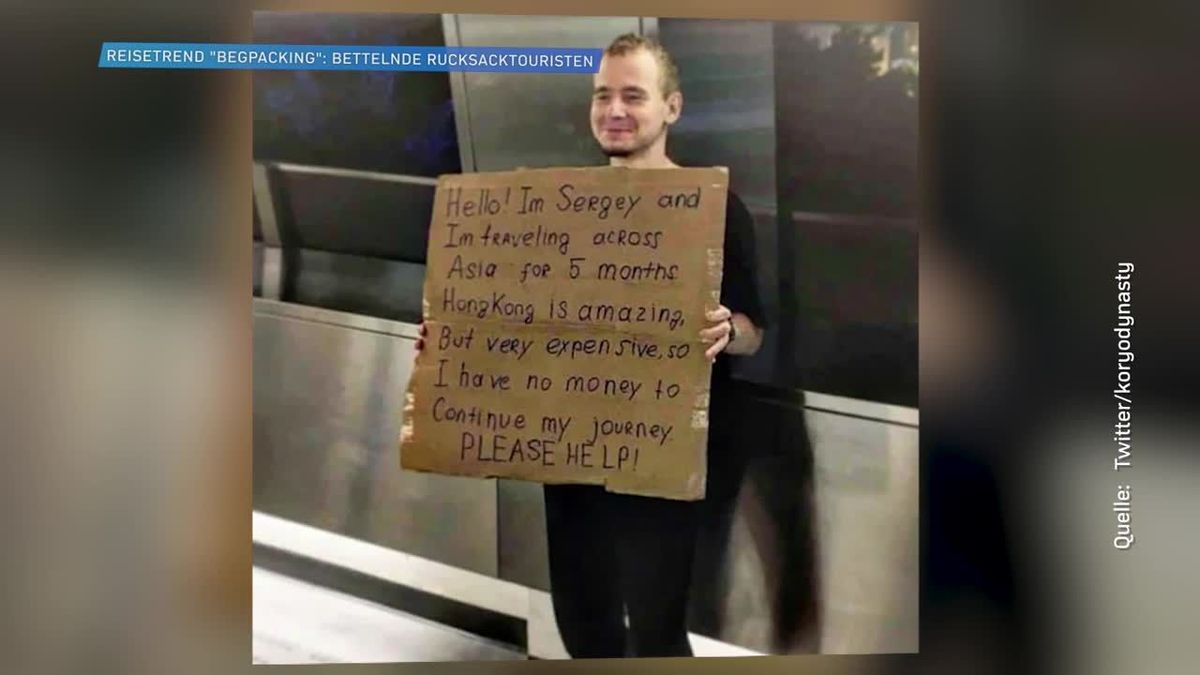 REISETREND "BEGPACKING": BETTELNDE RUCKSACKTOURISTEN
Hello! Im Sergey and
Im traveling across
Asia for 5 months
HongKong is amazing,
But very expensive, so
I have no money to
Continue my journey
PLEASE HELP!
Quelle: Twitter/koryodynasty